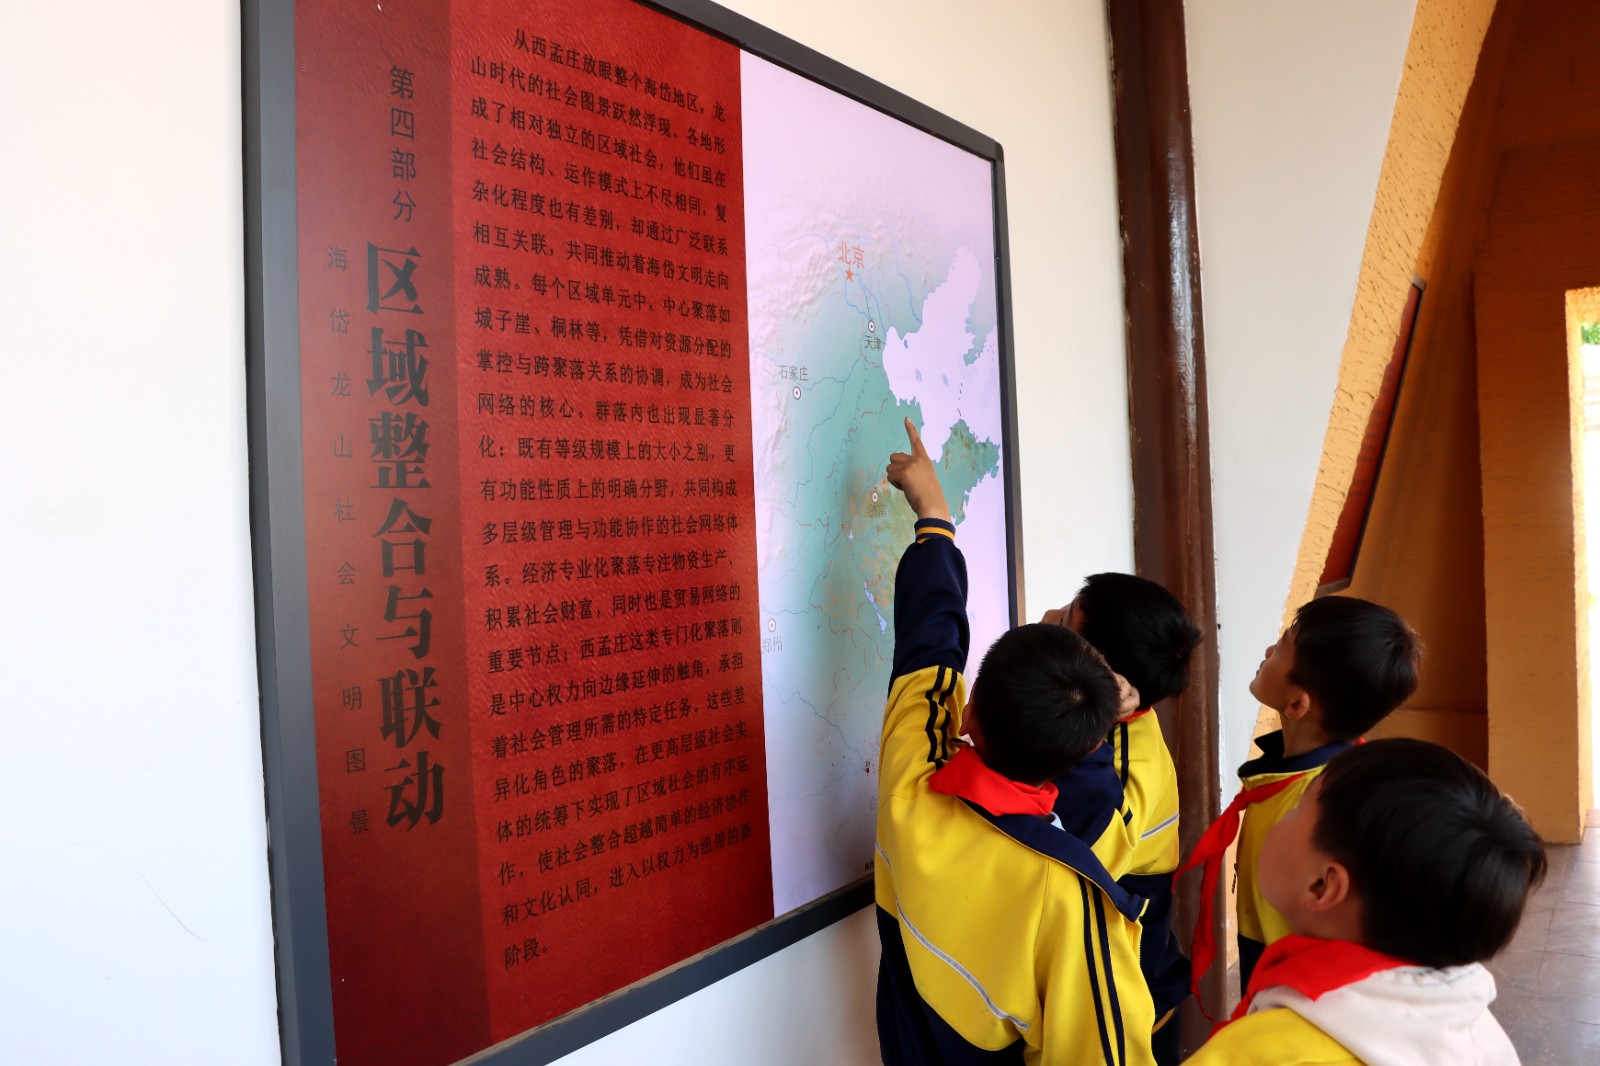 第四部分
区域整合与联动
海岱龙山社会文明图景
从西孟庄放眼整个海岱地区，龙
山时代的社会图景跃然浮现。各地形
成了相对独立的区域社会，他们虽在
社会结构、运作模式上不尽相同，复
杂化程度也有差别，却通过广泛联系
相互关联，共同推动着海岱文明走向
成熟。每个区域单元中，中心聚落如
城子崖、桐林等，凭借对资源分配的
掌控与跨聚落关系的协调，成为社会
网络的核心。群落内也出现显著分
化：既有等级规模上的大小之别，更
有功能性质上的明确分野，共同构成
多层级管理与功能协作的社会网络体
系。经济专业化聚落专注物资生产、
积累社会财富，同时也是贸易网络的
重要节点；西孟庄这类专门化聚落则
是中心权力向边缘延伸的触角，承担
着社会管理所需的特定任务。这些差
异化角色的聚落，在更高层级社会实
体的统筹下实现了区域社会的有序运
作，使社会整合超越简单的经济协作
和文化认同，进入以权力为纽带的新
阶段。
北京
天津
石家庄
渤海
济南
郑州